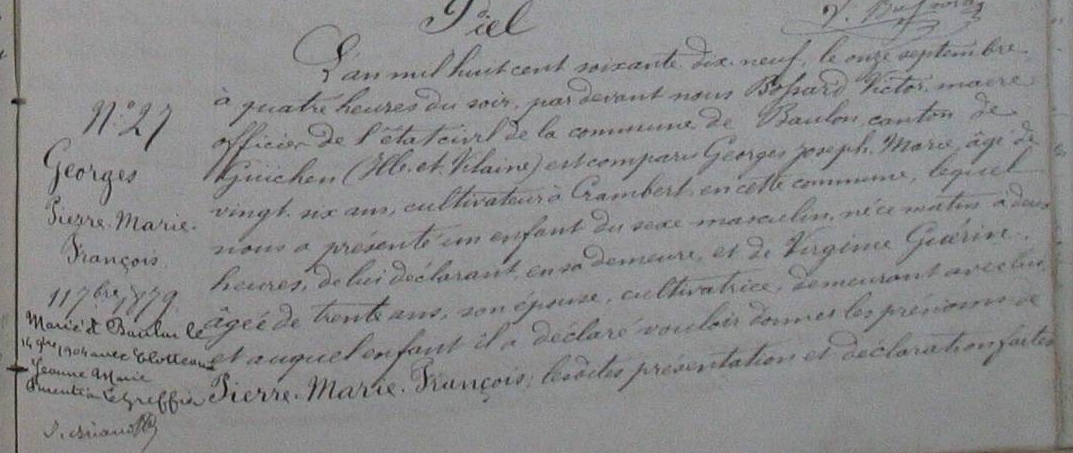 Piel
L'an mil huit cent soixante dix-neuf, le onze septembre
à quatre heures du soir, par devant nous Bossard Victor, maire
officier de l'état civil de la commune de Baulon canton de
Guichen (Ille-et-Vilaine) est comparu Georges Joseph-Marie, âgé de
vingt-six ans, cultivateur à Crambert, en cette commune, lequel
nous a présenté un enfant du sexe masculin, né ce matin à deux
heures, de lui déclarant en sa demeure, et de Virginie Guérin,
âgée de trente ans, son épouse, cultivatrice, demeurant avec lui
et auquel enfant il a déclaré vouloir donner les prénoms de
Pierre-Marie-François; lesdites présentation et déclaration faites
N° 27
Georges
Pierre-Marie-
François
11 7bre 1879
Marié à Baulon le
1904 avec
Jeanne Marie
le Greffier